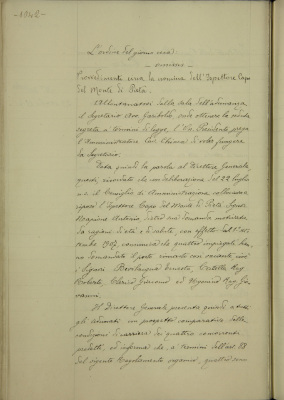 -1942-
L'ordine del giorno reca:
- omissis -
Provvedimenti circa la nomina dell'Ispettore Capo
del Monte di Pietà.
Allontanatosi dalla sala dell'adunanza
il Segretario Avv. Garibaldi onde ottenere la seduta
segreta a termini di legge, il Vice Presidente prega
l'Amministratore Cav. Chiana di voler fungere
da Segretario.
Data quindi la parola al Direttore Generale
questi, ricordato che con deliberazione del 22 luglio
il Consiglio di Amministrazione collocava
a riposo l'Ispettore Capo del Monte di Pietà Signor
Antonio, dietro sua domanda motivata
da ragioni di età e di salute, con effetto dal 1°
1907, comunica che quattro impiegati han
no domandato il posto rimasto così vacante, cioè i
Signori Ernesto, Rag
Roberto, Giacomo ed Rag. Gio
vanni.
Il Direttore Generale presenta quindi a tutti
gli adunati un prospetto comparativo delle
condizioni di carriera dei quattro concorrenti
predetti, ed informa che, a termini dell'art. 88
del vigente Regolamento organico, questi sono